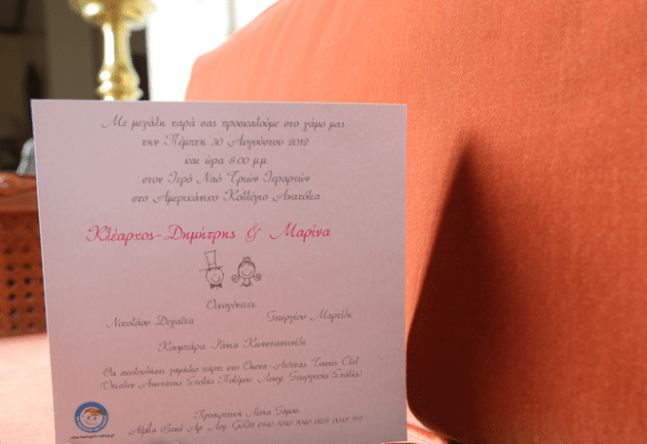 Με μεγάλη χαρά σας προσκαλούμε στο γάμο μας
την Πέμπτη 30 Αυγούστου 2012
και ώρα 8:00 μ.μ
στον Ιερό Ναό Τριών Ιεραρχών
στο Αμερικάνικο Κολλέγιο Ανατόλια
Κλέαρχος-Δημήτρης & Μαρίνα
Οικογένειες
Νικολάου Γεωργίου
Κουμπάρα: Κωνσταντινίδη
Θα ακολουθήσει γαμήλιο πάρτι στο Tennis Club
Σχολής Πολέμου, Γεωργικής Σχολής)
Προαιρετική Λίστα Γάμου
Alpha Bank Αρ. Λογ.